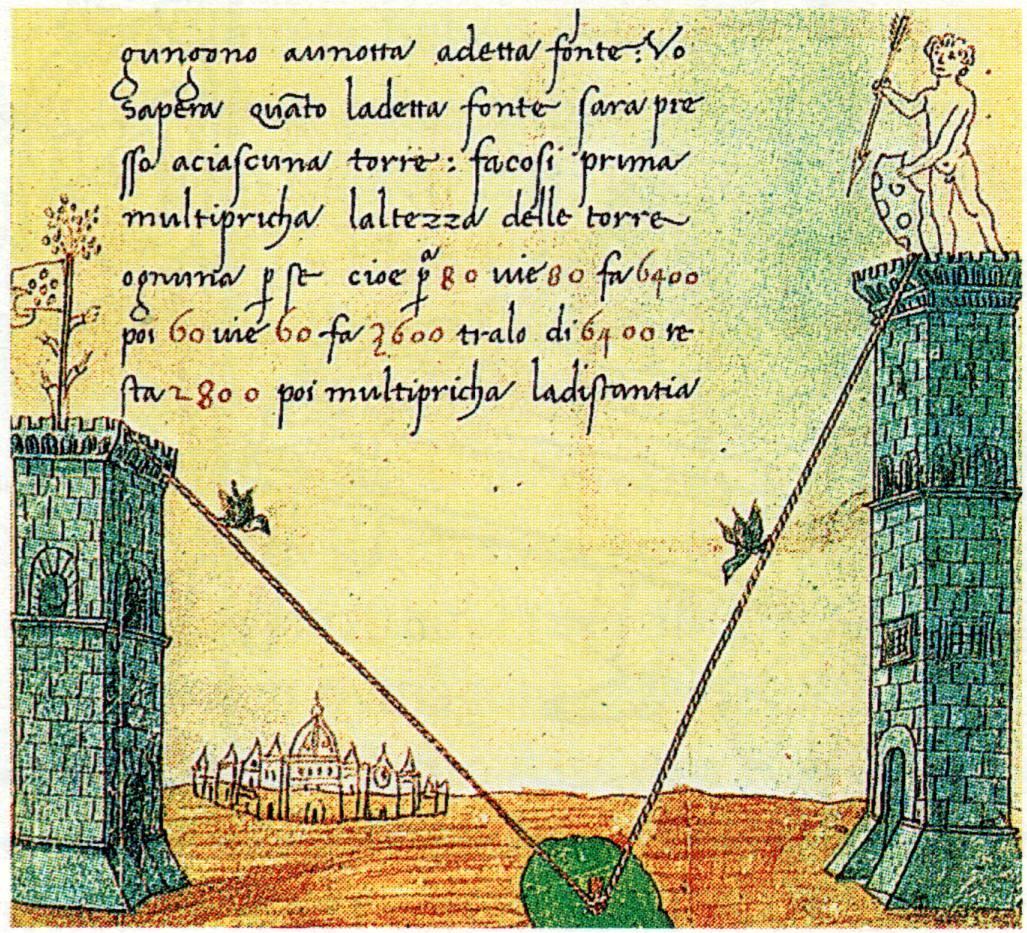 gungono aunotta adetta fonte: Vo
Sapera quãto ladetta fonte sara pre
sso aciascuna torre: facosi prima
multipricha laltezza delle torre
ognuna p se cioe pª 80 uie 80 fa 6400
poi 60 uie 60 fa 3600 tralo di 6400 re
sta 2800 poi multipricha ladistantia